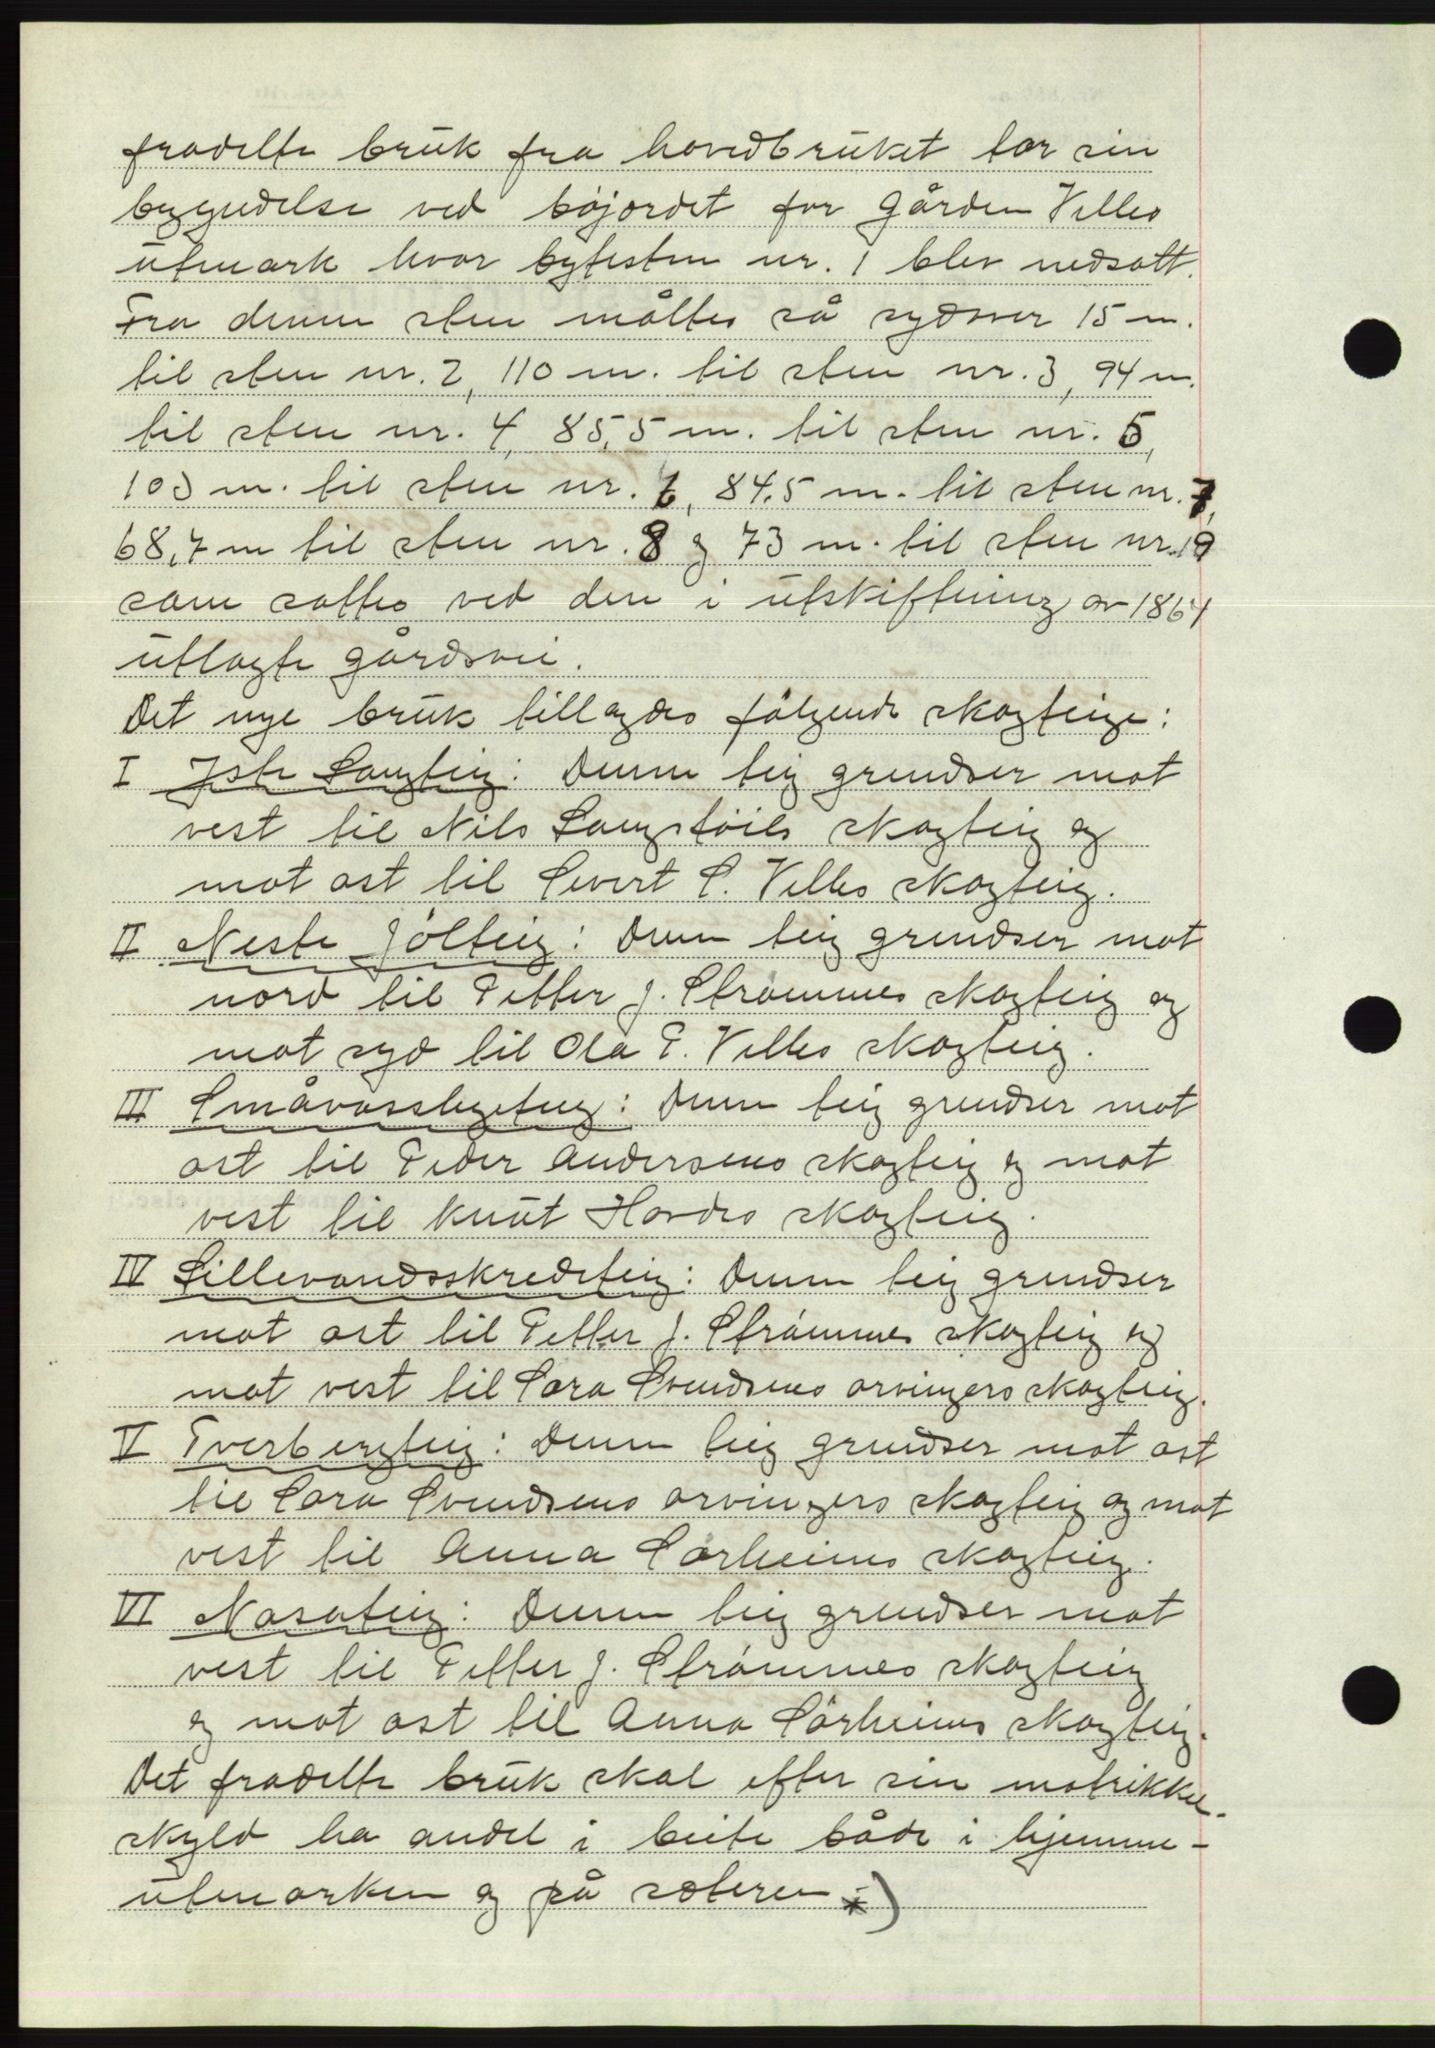 fradelte bruk fra hovedbruket tar sin
begyndelse ved böjordet for gården Velles
utmark hvor bytesten nr. 1 blev nedsatt.
Fra denne sten måltes så sydover 15 m.
til sten nr. 2, 110 m. til sten nr. 3, 94 m.
til sten nr. 4, 85,5 m. til sten nr. 5,
103 m. til sten nr. 6, 84,5 m. til sten nr. 7,
68,7 m til sten nr. 8 og 73 m. til sten nr. 9
som sattes ved den i utskiftning av 1864
utlagte gårdsvei.
Det nye bruk tillagdes fölgende skogteige:
I Jste Langteig: Denne teig grendser mot
vest til Nils Langstöils skogteig og
mot ost til Sivert S. Velles skogteig.
II Neste Jölteig: Denne teig grendser mot
nord til Petter J. Strömmes skogteig og
mot syd til Ola P. Velles skogteig.
III Småvasslegeteig: Denne teig grendser mot
ost til Peder Andersens skogteig og mot
vest til Knut Hovdes skogteig.
IV Lillevandsskredeteig: Denne teig grendser
mot ost til Petter J. Strömmes skogteig og
mot vest til Lara Svendsens arvingers skogteig.
V Tverbergteig: Denne teig grendser mot ost
til Lara Svendsens arvingers skogteig og mot
vest til Anna Sörheims skogteig.
VI Nasateig: Denne teig grendser mot
vest til Petter J. Strömmes skogteig
og mot ost til Anna Sörheims skogteig.
Det fradelte bruk skal efter sin matrikkel-
skyld ha andel i beite både i hjemme-
utmarken og på sæteren *)